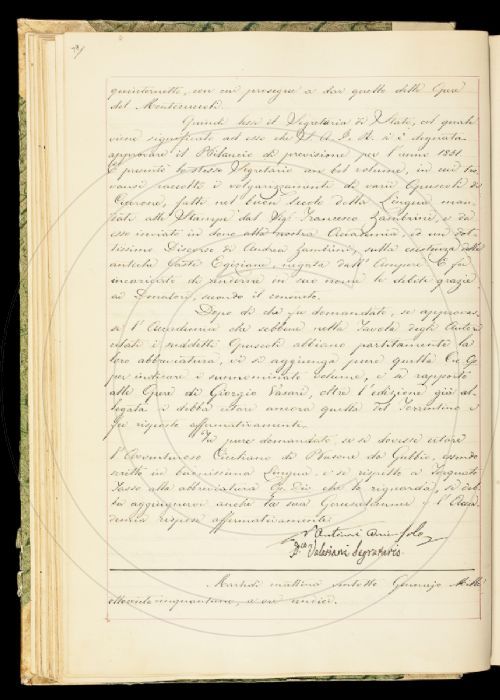 quinternetto, con cui prosegue a dar quello delle Opere
del Montecuccoli.
Quindi lesse il Segretario di Stato, col quale
viene significato ad esso che S. A. I. R. si è degnata
approvare il Bilancio di previsione per l'anno 1851.
E presentò lo stesso Segretario un bel volume, in cui tro,
vansi raccolti i volgarizzamenti di varii Opuscoli di
Cicerone, fatti nel buon secolo della Lingua, man,
dati alle Stampe dal Sig. Francesco Zambrini, e da
esso inviato in dono alla nostra Accademia, ed un dot,
tissimo Discorso di Andrea Zambrini, sulla esistenza delle
antiche Caste Egiziane, negata dall'Ampere. E fu
incaricato di renderne in suo nome le debite grazie
ai Donatori, secondo il consueto.
Dopo di che fu domandato, se approvas,
se l'Accademia che sebbene nella Tavola degli Autori
citati i suddetti Opuscoli abbiano partitamente la
loro abbreviatura, vi si aggiunga pure quella Cic. Op.
per indicare il summinomato volume, e se rapporto
alle Opere di Giorgio Vasari, oltre l'edizione già al,
legata si debba citare ancora quella del Torrentino e
fu risposto affermativamente.
Fu pure domandato se si dovesse citare
l'Avventuroso Ciciliano di Busone da Gubbio, essendo
scritto in buonissima Lingua, e se rispetto a Torquato
Tasso alla abbreviatura che lo riguarda, si deb,
ba aggiungervi anche la sua Gerusalemme e l'Acca,
demia rispose affermativamente.
Valeriani Segretario
Martedì mattina ventotto Gennajo Mille
ottocento cinquantuno, a ore undici.